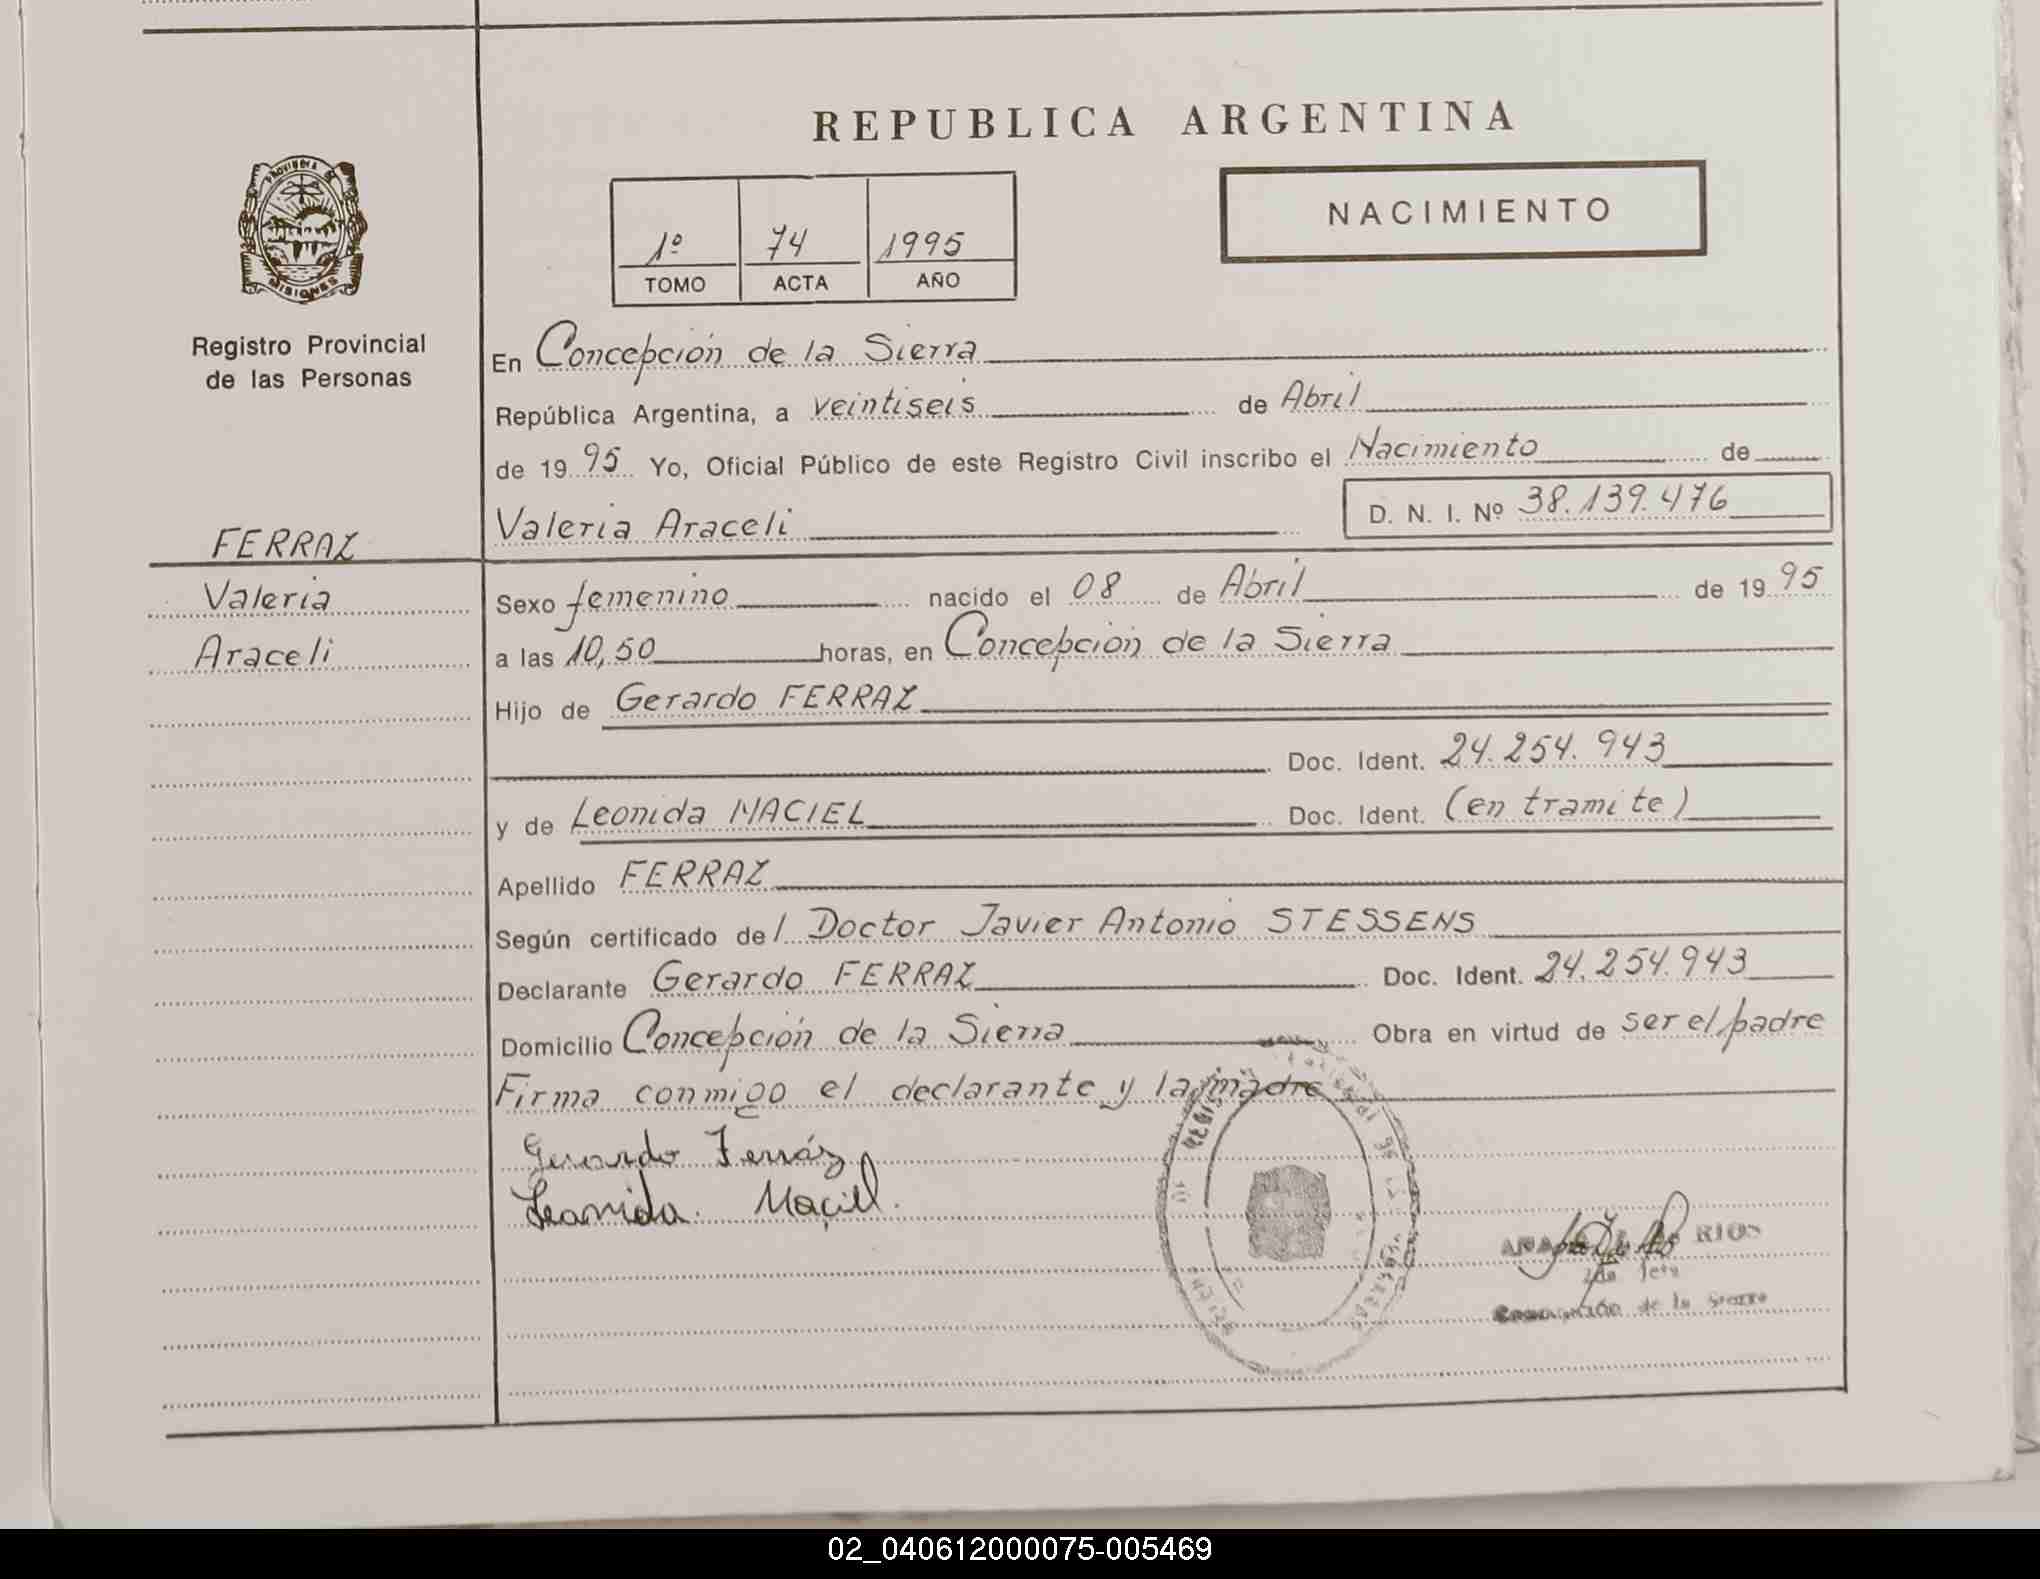 REPUBLICA ARGENTINA
PROVINCIA DE
MISIONES
NACIMIENTO
1º 74 1995
TOMO ACTA AÑO
Registro Provincial
de las Personas
En Concepción de la Sierra
República Argentina, a veintiseis de Abril
de 1995 Yo, Oficial Público de este Registro Civil inscribo el Nacimiento de
Valeria Araceli D. N. I. Nº 38.139.476
FERRAZ
Valeria
Araceli
Sexo femenino nacido el 08 de Abril de 1995
a las 10,50 horas, en Concepción de la Sierra
Hijo de Gerardo FERRAZ
Doc. Ident. 24.254.943
y de Leonida MACIEL Doc. Ident. (en tramite)
Apellido FERRAZ
Según certificado del Doctor Javier Antonio STESSENS
Declarante Gerardo FERRAZ Doc. Ident. 24.254.943
Domicilio Concepción de la Sierra Obra en virtud de ser el padre
Firma conmigo el declarante y la madre
Gerardo Ferráz
Leonida Maciel.
RIOS
de la Sierra
02_040612000075-005469